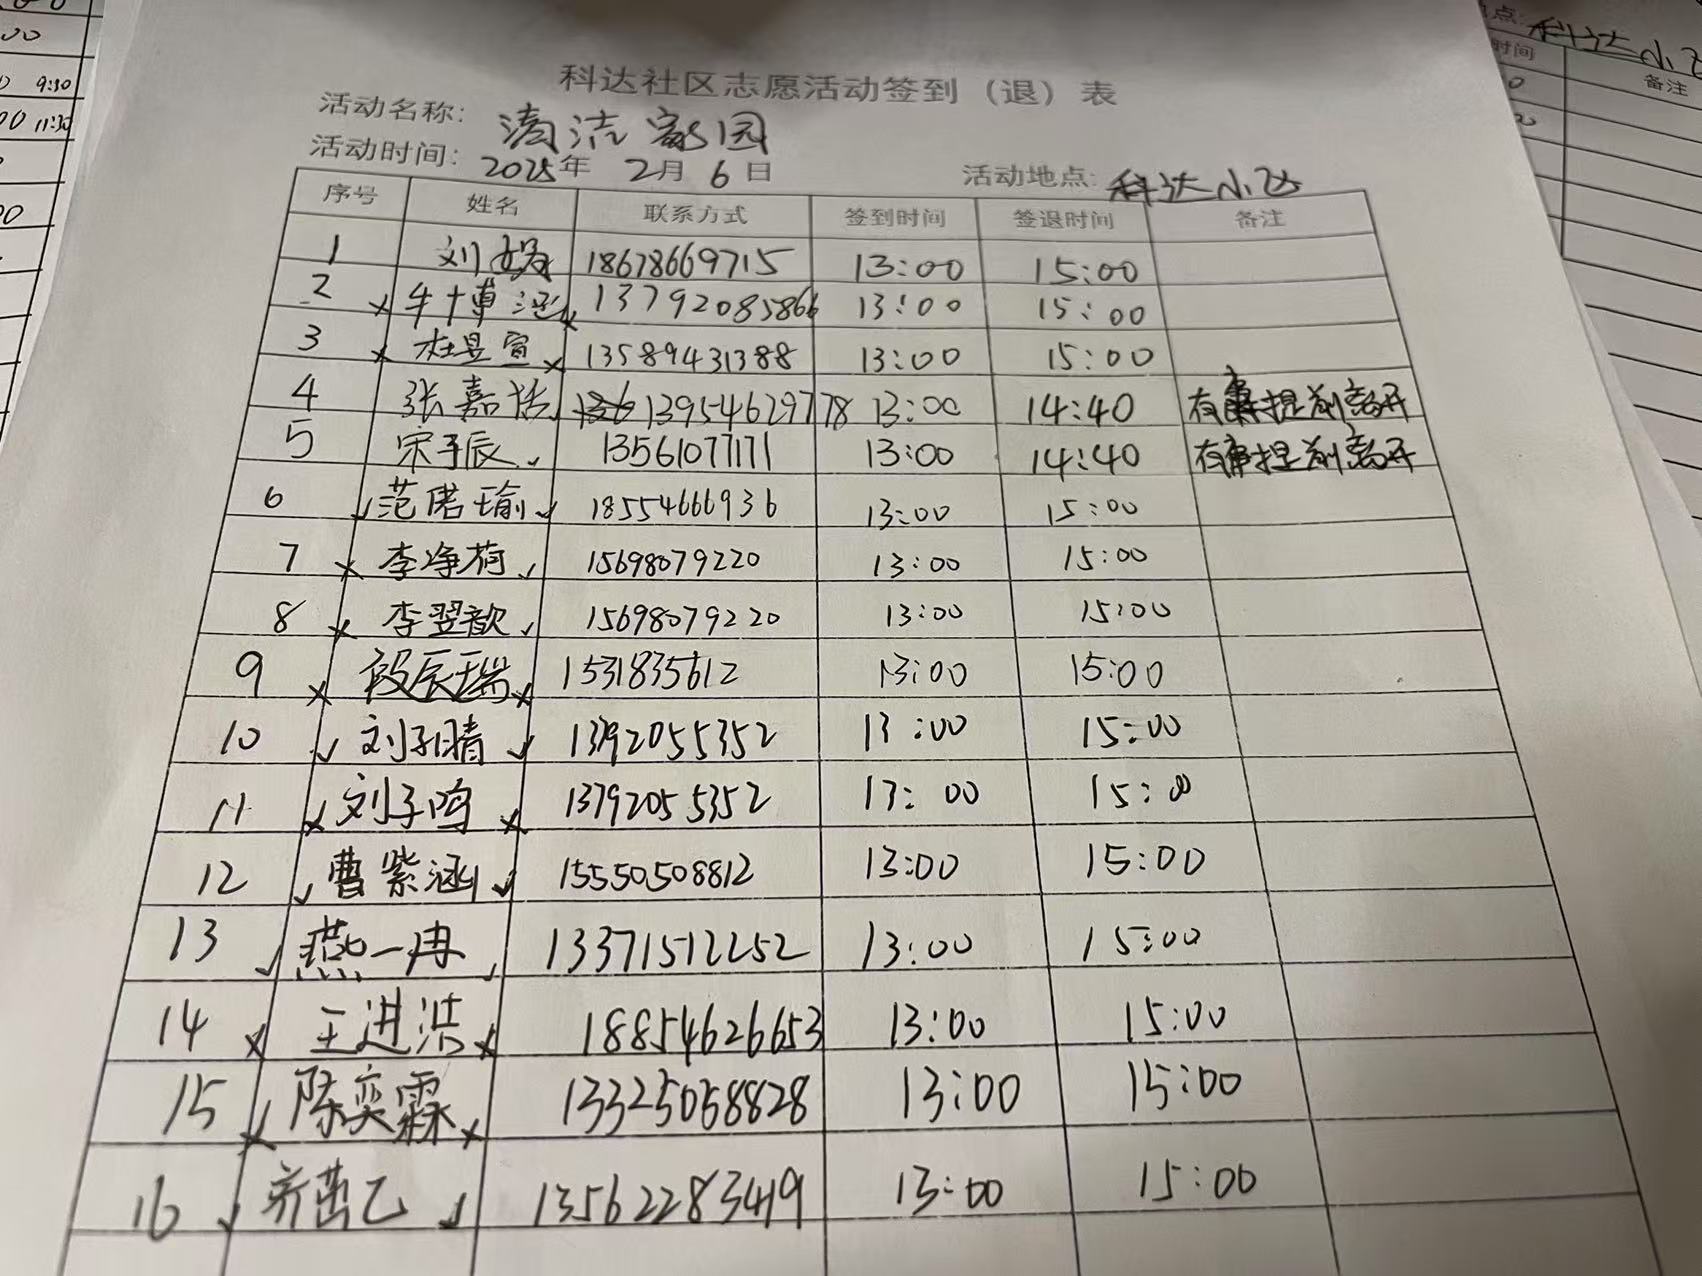 科达社区志愿活动签到（退）表
活动名称： 清洁家园
活动时间： 2025年 2月 6日 活动地点： 科达小区
序号 姓名 联系方式 签到时间 签退时间 备注
1 刘 18678669715 13:00 15:00
2 × 牛博涵 × 13792085866 13:00 15:00
3 × 杜昱宣 × 13589431388 13:00 15:00
4 张嘉恬 13954629778 13:00 14:40 有事提前离开
5 宋子辰 ✓ 13561077171 13:00 14:40 有事提前离开
6 ✓ 范偌瑜 ✓ 18554666936 13:00 15:00
7 × 李净荷 ✓ 15698079220 13:00 15:00
8 × 李翌歆 ✓ 15698079220 13:00 15:00
9 × 段辰瑞 × 1531835612 13:00 15:00
10 ✓ 刘子晴 ✓ 13792055352 13:00 15:00
11 × 刘子鸣 × 13792055352 13:00 15:00
12 ✓ 曹紫涵 ✓ 15550508812 13:00 15:00
13 ✓ 燕一冉 ✓ 13371512252 13:00 15:00
14 × 王进洪 × 18854626653 13:00 15:00
15 × 陈奕霖 × 13325058828 13:00 15:00
16 ✓ 乙 ✓ 13562283419 13:00 15:00
9:30
11:30
点： 科达小区
时间 备注